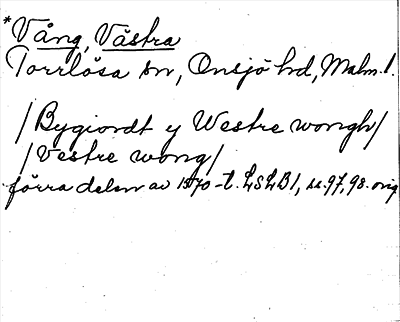 *Vång, Västra
Torrlösa sn, Onsjö hd, Malm. l.
/Bygiordt y Westre wongh/
/Vestre wong/
förra delen av 1570-t. LSLB1, ss. 97, 98. orig